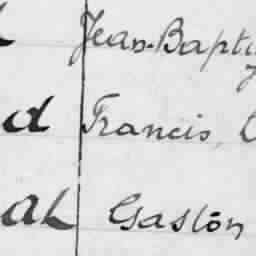 Jean-Bapti
d Francis,
al Gaston